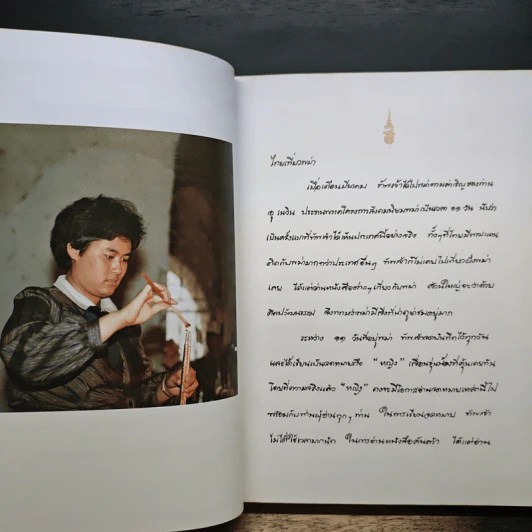 ไทยเที่ยวพม่า
เมื่อเดือนมีนาคม ข้าพเจ้าได้ไปพม่าตามคำเชิญของท่าน
อู เนวิน ประธานพรรคโครงการสังคมนิยมพม่าเป็นเวลา ๑๑ วัน นับว่า
เป็นครั้งแรกที่ข้าพเจ้าได้เห็นประเทศนี้อย่างจริง ทั้งๆที่ไทยมีพรมแดน
ติดกับพม่ามากกว่าประเทศอื่นๆ ข้าพเจ้าก็ไม่เคยไปเที่ยวฝั่งพม่า
เลย ได้แต่อ่านหนังสือต่างๆเกี่ยวกับพม่า ส่วนใหญ่จะว่าด้วย
ศิลปวัฒนธรรม ซึ่งทราบว่ามีสิ่งที่น่าดูน่าชมอยู่มาก
ระหว่าง ๑๑ วันที่อยู่พม่า ข้าพเจ้าจดบันทึกไว้ทุกวัน
และได้เขียนเป็นจดหมายถึง "หญิง" เพื่อนรุ่นน้องที่คุ้นเคยกัน
โดยที่ความจริงแล้ว "หญิง" คงจะมีโอกาสอ่านจดหมายเหล่านี้ไป
พร้อมกับท่านผู้อ่านทุกๆท่าน ในการเขียนจดหมาย ข้าพเจ้า
ไม่ได้ใช้เวลามากนัก ในการอ่านหนังสือค้นคว้า ได้แต่อ่าน